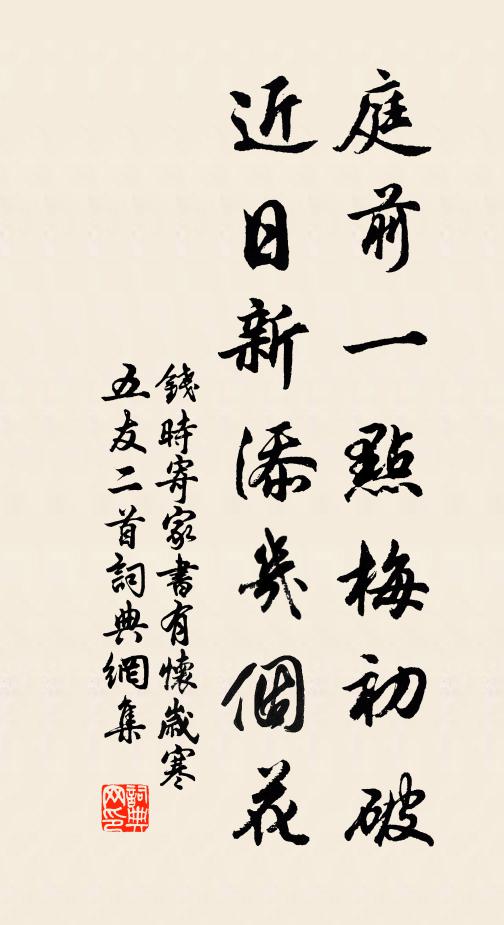 庭前一點梅初破
近日新添幾個花
錢時寄家書有懷歲寒
五友二首詞典網集
詞典
网印